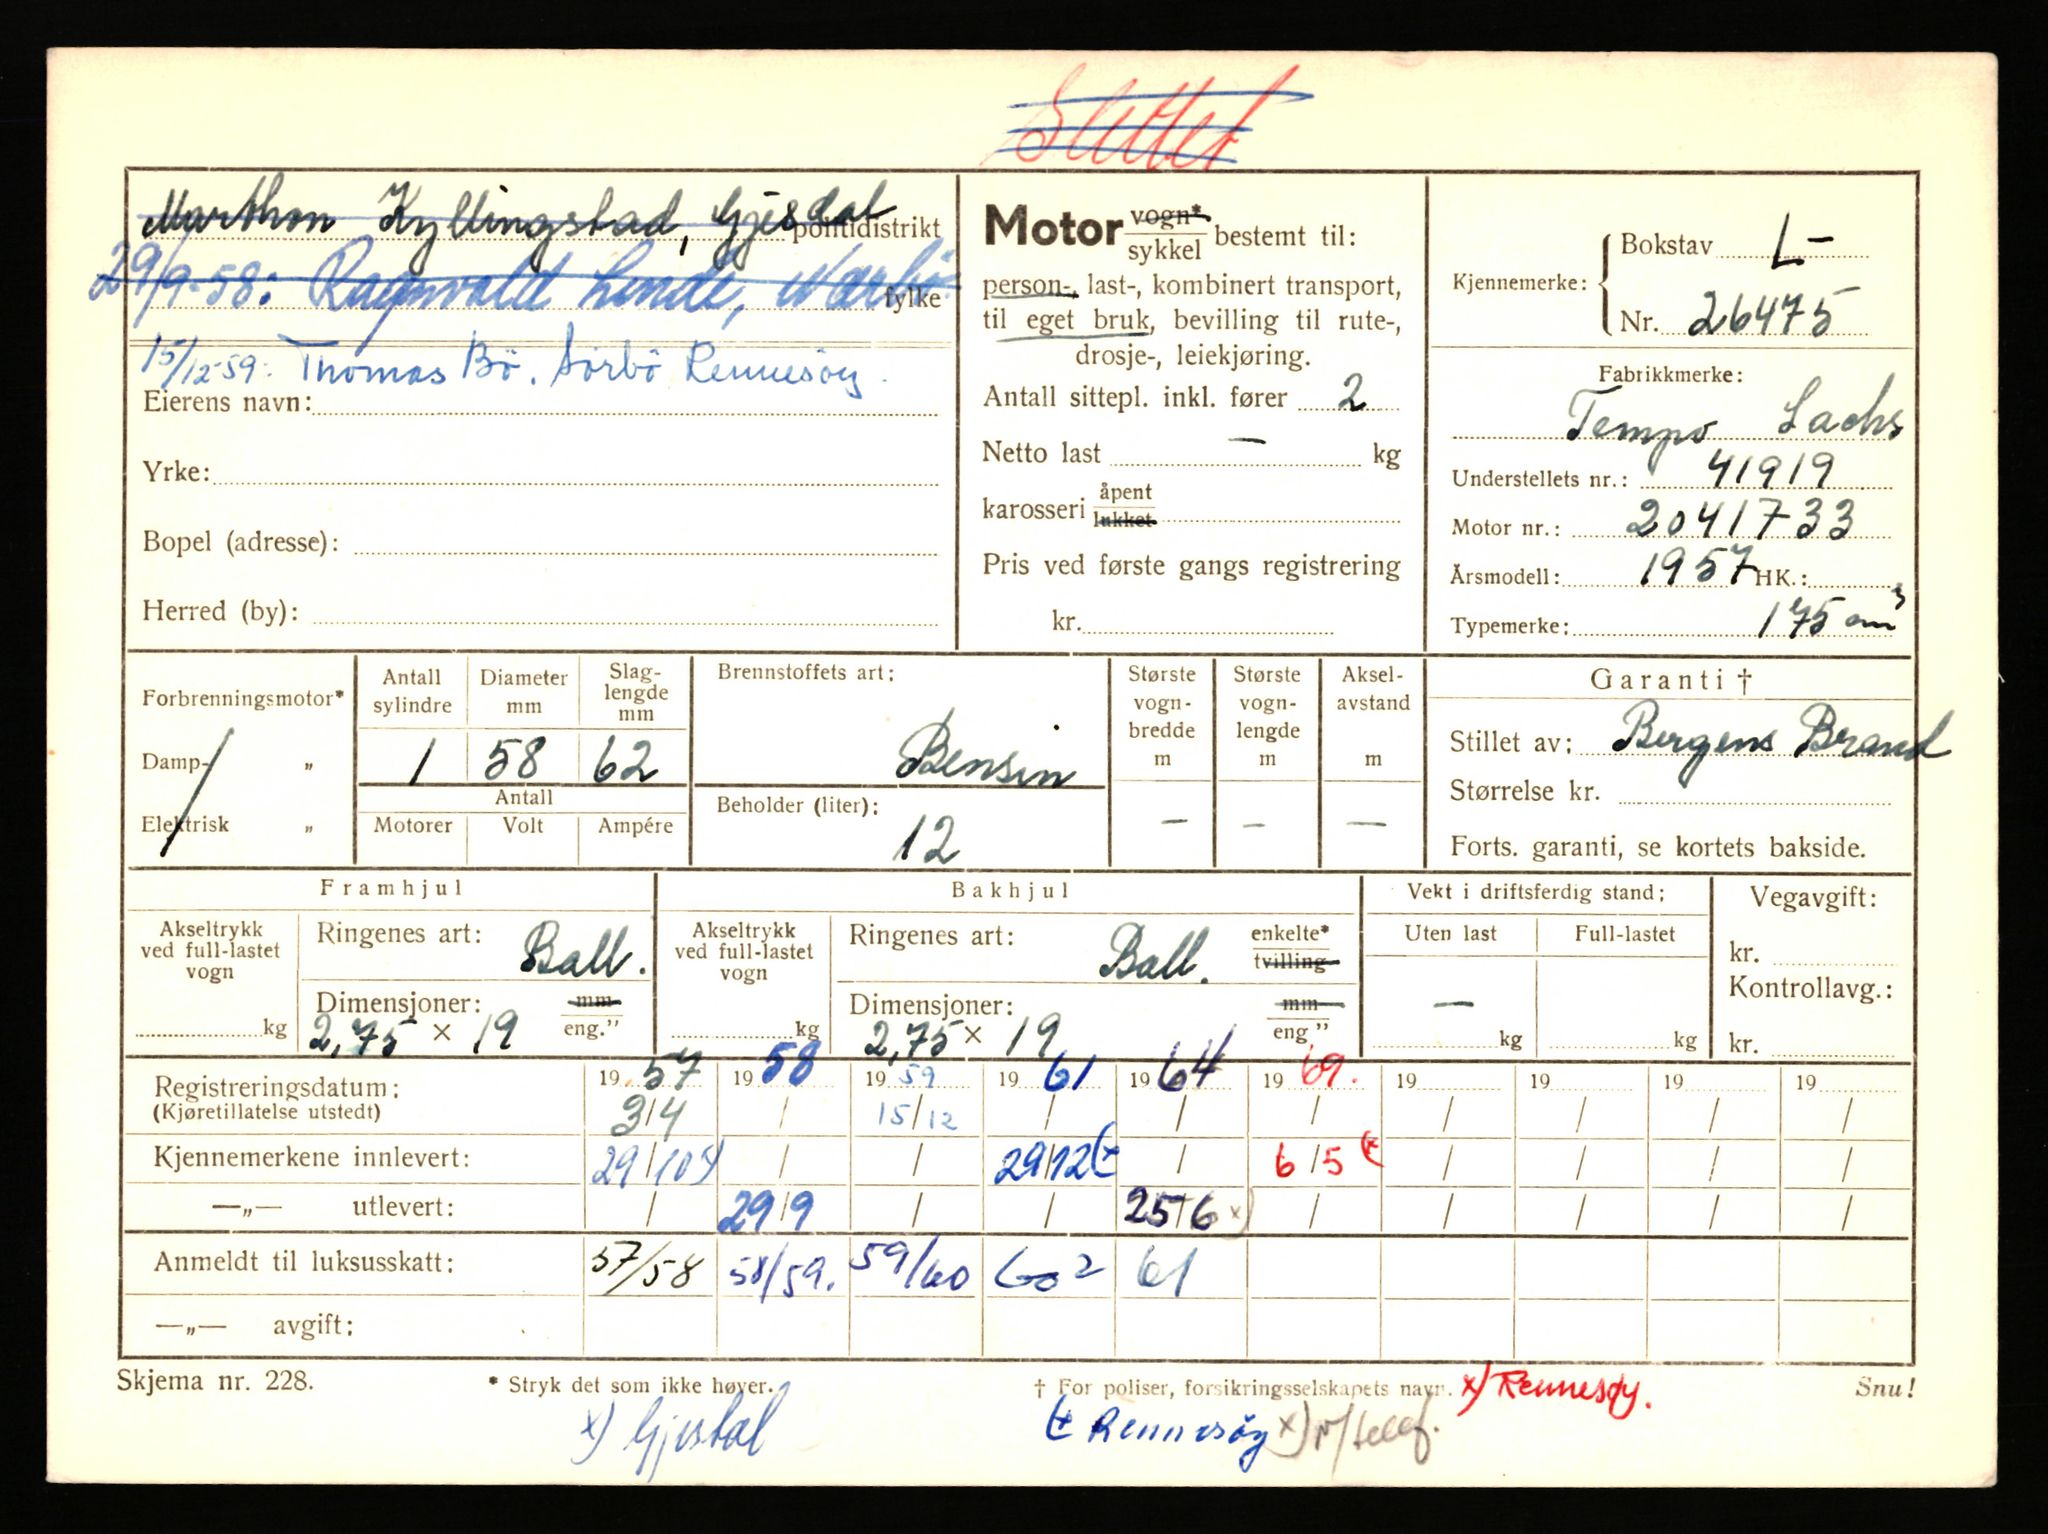 Slettet
Marthon Kyllingstad, Gjesdal politidistrikt
29/9-58: Ragnvald Linde, Nærbø fylke
15/12-59: Thomas Bö, Sörbö Rennesöy.
Eierens navn:
Yrke:
Bopel (adresse):
Herred (by):
Motor vogn* / sykkel bestemt til:
person-, last-, kombinert transport,
til eget bruk, bevilling til rute-,
drosje-, leiekjøring.
Antall sittepl. inkl. fører 2
Netto last — kg
karosseri åpent / lukket
Pris ved første gangs registrering
kr.
Kjennemerke: Bokstav L-
Nr. 26475
Fabrikkmerke:
Tempo Sachs
Understellets nr.: 41919
Motor nr.: 2041733
Årsmodell: 1957 HK.:
Typemerke: 175 cm³
Forbrenningsmotor*
Damp- „
Elektrisk „
Antall sylindre
Diameter mm
Slag-lengde mm
1 58 62
Antall
Motorer Volt Ampére
Brennstoffets art:
Bensin
Beholder (liter):
12
Største vogn-bredde m
Største vogn-lengde m
Aksel-avstand m
— — —
Garanti †
Stillet av: Bergens Brand
Størrelse kr.
Forts. garanti, se kortets bakside.
Framhjul
Akseltrykk ved full-lastet vogn
kg
Ringenes art: Ball.
Dimensjoner: mm / eng.”
2,75 × 19
Bakhjul
Akseltrykk ved full-lastet vogn
kg
Ringenes art: Ball. enkelte* / tvilling
Dimensjoner: mm / eng.”
2,75 × 19
Vekt i driftsferdig stand:
Uten last Full-lastet
— kg kg
Vegavgift:
kr.
Kontrollavg.:
kr.
Registreringsdatum: 1957 1958 1959 1961 1964 1969. 19 19 19 19
(Kjøretillatelse utstedt) 3/4 / 15/12 / / / / / / /
Kjennemerkene innlevert: 29/10 x) / / 29/12 (x / 6/5 (x / / / /
—„— utlevert: / 29/9 / / 25/6 x) / / / / /
Anmeldt til luksusskatt: 57/58 58/59. 59/60 60² 61
—„— avgift:
Skjema nr. 228.
* Stryk det som ikke høver.
† For poliser, forsikringsselskapets navn. x) Rennesøy.
Snu!
x) Gjesdal
(x Rennesöy x) p/telef.